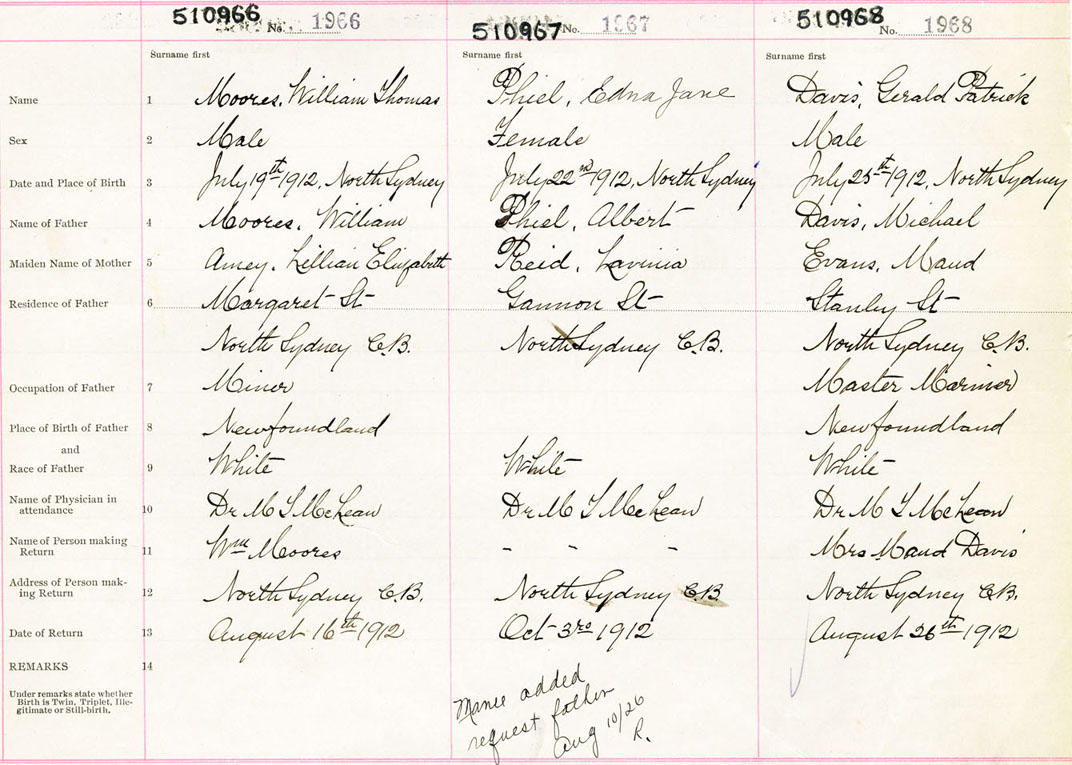 510966 No. 1966
510967 No. 1967
510968 No. 1968
Surname first Surname first Surname first
Name 1 Moores, William Thomas Phiel, Edna Jane Davis, Gerald Patrick
Sex 2 Male Female Male
Date and Place of Birth 3 July 19th 1912, North Sydney July 22nd 1912, North Sydney July 25th 1912, North Sydney
Name of Father 4 Moores, William Phiel, Albert Davis, Michael
Maiden Name of Mother 5 Amey, Lillian Elizabeth Reid, Lavinia Evans, Maud
Residence of Father 6 Margaret St Gannon St Stanley St
North Sydney C.B. North Sydney C.B. North Sydney C.B.
Occupation of Father 7 Miner Master Mariner
Place of Birth of Father 8 Newfoundland Newfoundland
and
Race of Father 9 White White White
Name of Physician in
attendance 10 Dr M McLean Dr M McLean Dr M McLean
Name of Person making
Return 11 Wm Moores - - - Mrs Maud Davis
Address of Person mak-
ing Return 12 North Sydney C.B. North Sydney C.B. North Sydney C.B.
Date of Return 13 August 16th 1912 Oct 3rd 1912 August 26th 1912
REMARKS 14
Under remarks state whether
Birth is Twin, Triplet, Ille-
gitimate or Still-birth.
added
request father
Aug 10/26
R.